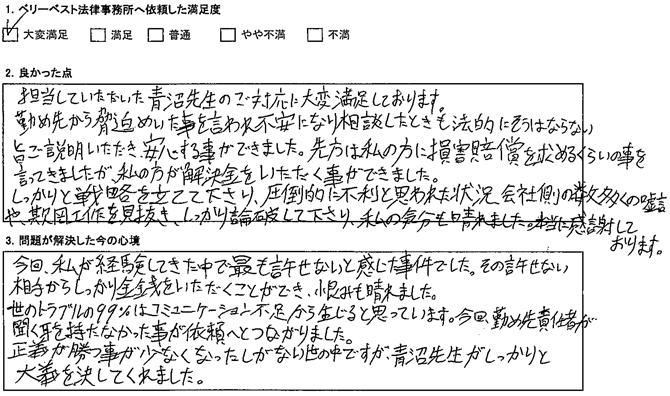 1. ベリーベスト法律事務所へ依頼した満足度
大変満足 満足 普通 やや不満 不満
2. 良かった点
担当していただいた青沼先生のご対応に大変満足しております。
勤め先から脅迫めいた事を言われ不安になり相談したときも法的にそうはならない
旨ご説明いただき、安心する事ができました。先方は私の方に損害賠償を求めるくらいの事を
言ってきましたが、私の方が解決金をいただく事ができました。
しっかりと戦略を立てて下さり、圧倒的に不利と思われた状況、会社側の数多くの嘘言
や、欺罔工作を見抜き、しっかり論破して下さり、私の気分も晴れました。本当に感謝して
おります。
3. 問題が解決した今の心境
今回、私が経験してきた中で最も許せないと感じた事件でした。その許せない
相手からしっかり金銭をいただくことができ、恨みも晴れました。
世のトラブルの99%はコミュニケーション不足から生じると思っています。今回、勤め先責任者が
聞く耳を持たなかった事が依頼へとつながりました。
正義が勝つ事が少なくなったしがない世の中ですが、青沼先生がしっかりと
大義を決してくれました。